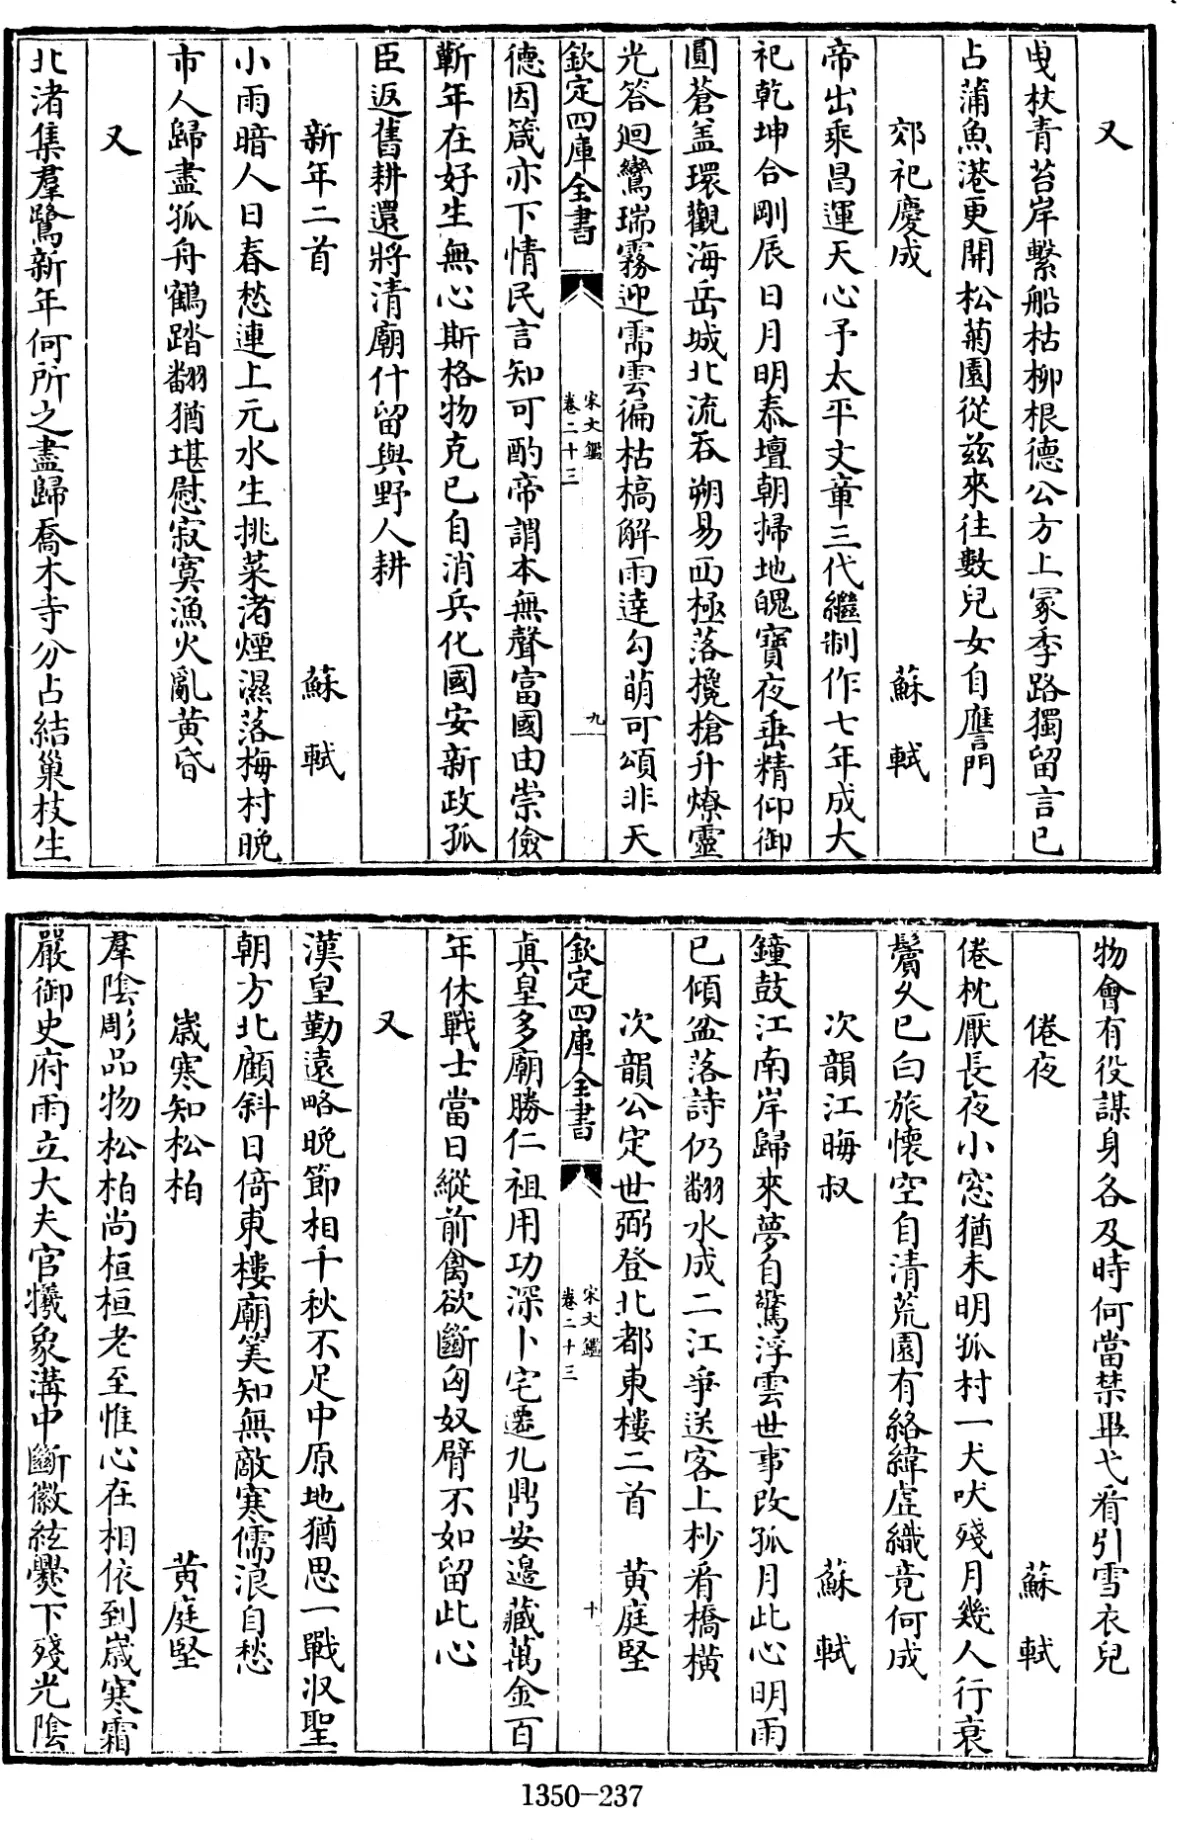 又
曵杖青苔岸繫船枯柳根德公方上冡季路獨留言已
占蒲魚港更開松菊園從兹來往數兒女自應門
郊祀慶成　蘇軾
帝出乘昌運天心予太平文章三代繼制作七年成大
祀乾坤合剛辰日月明泰壇朝掃地魄寳夜垂精仰御
圓蒼盖環觀海岳城北流吞朔易西極落攙槍升燎靈
光答迴鸞瑞霧迎需雲偏枯槁解雨達勾萌可頌非天
欽定四庫全書　宋文鑑卷二十三　九
德因箴亦下情民言知可酌帝謂本無聲富國由崇儉
蘄年在好生無心斯格物克已自消兵化國安新政孤
臣返舊耕還將清廟什留與野人耕
新年二首　蘇軾
小雨暗人日春愁連上元水生挑菜渚煙濕落梅村晚
市人歸盡孤舟鶴踏翻猶堪慰寂寞漁火亂黄昏
又
北渚集羣鷺新年何所之盡歸喬木寺分占結巢枝生
物會有役謀身各及時何當禁畢弋看引雪衣兒
倦夜　蘇軾
倦枕厭長夜小窓猶未明孤村一犬吠殘月幾人行衰
鬢久已白旅懷空自清荒園有絡緯虚織竟何成
次韻江晦叔　蘇軾
鐘鼓江南岸歸來夢自驚浮雲世事改孤月此心明雨
已傾盆落詩仍翻水成二江爭送客上杪看橋横
次韻公定世弼登北都東樓二首　黄庭堅
欽定四庫全書　宋文鑑卷二十三　十
真皇多廟勝仁祖用功深卜宅遷九鼎安邊藏萬金百
年休戰士當日縱前禽欲斷匈奴臂不如留此心
又
漢皇勤遠略晚節相千秋不足中原地猶思一戰收聖
朝方北顧斜日倚東樓廟筭知無敵寒儒浪自愁
嵗寒知松柏　黄庭堅
羣陰彫品物松柏尚桓桓老至惟心在相依到嵗寒霜
嚴御史府雨立大夫官犧象溝中斷徽絃爨下殘光陰
1350-237